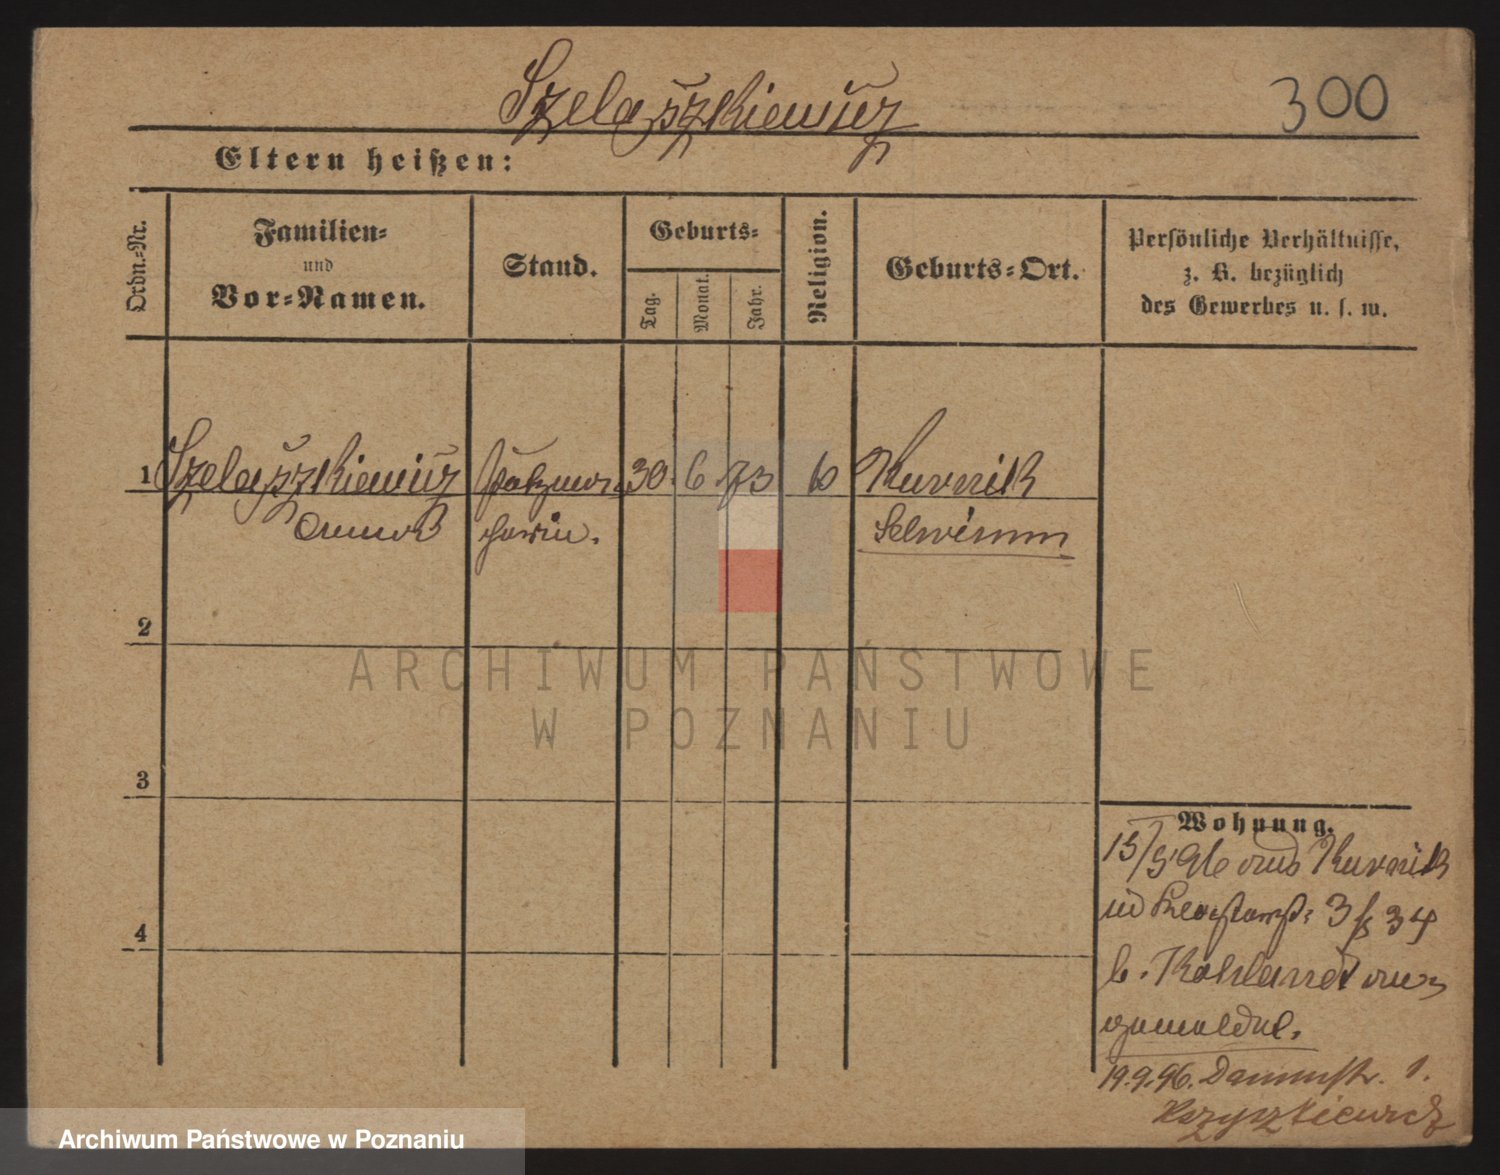 Szelaszkiewicz
300
Eltern heißen:
Ordn.-Nr.
Familien-
und
Vor-Namen.
Stand.
Geburts-
Tag.
Monat.
Jahr.
Religion.
Geburts-Ort.
Persönliche Verhältnisse,
z. B. bezüglich
des Gewerbes u. s. w.
1
Szelaszkiewicz
30. 6 73
Kurnik
Schrimm
2
3
4
Wohnung.
15/5 96 aus Kurnik
3 34
b.
gemeldet.
19.9.96. Dammstr. 1.
ARCHIWUM PAŃSTWOWE
W POZNANIU
Archiwum Państwowe w Poznaniu